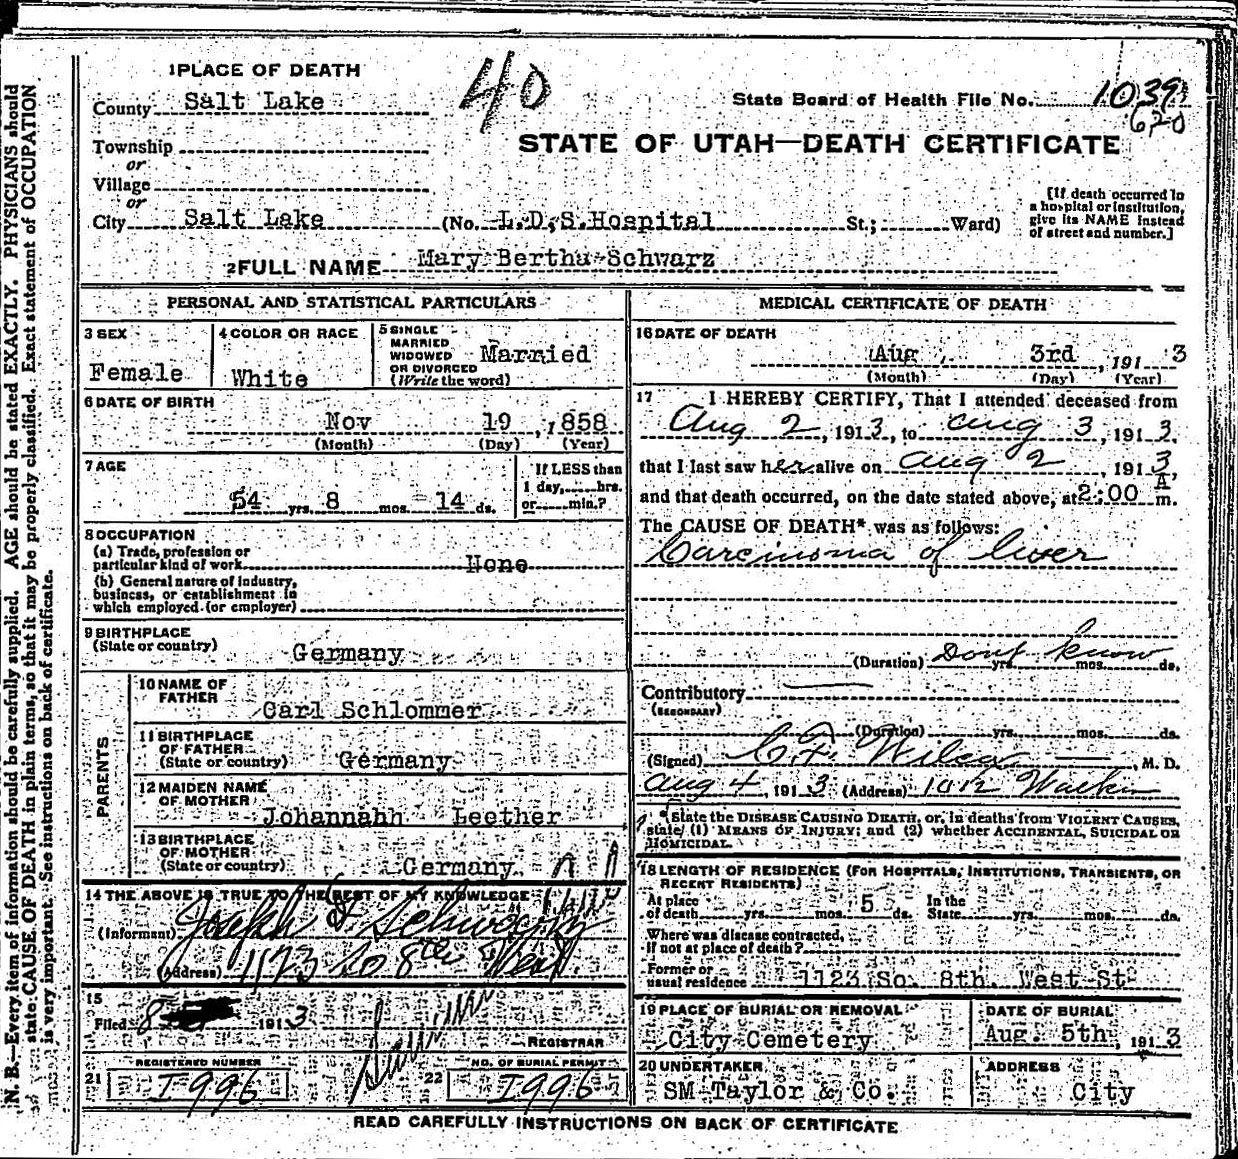 1 PLACE OF DEATH
County Salt Lake
40
State Board of Health File No. 1039
620
STATE OF UTAH—DEATH CERTIFICATE
Township
or
Village
or
City Salt Lake (No. L.D.S. Hospital St.; Ward)
[If death occurred in
a hospital or institution,
give its NAME instead
of street and number.]
2 FULL NAME Mary Bertha Schwarz
PERSONAL AND STATISTICAL PARTICULARS
3 SEX
Female
4 COLOR OR RACE
White
5 SINGLE
MARRIED
WIDOWED
OR DIVORCED
(Write the word)
Married
6 DATE OF BIRTH
Nov 19, 1858
(Month) (Day) (Year)
7 AGE
54 yrs. 8 mos. 14 ds.
If LESS than
1 day, hrs.
or min.?
8 OCCUPATION
(a) Trade, profession or
particular kind of work None
(b) General nature of industry,
business, or establishment in
which employed (or employer)
9 BIRTHPLACE
(State or country)
Germany
PARENTS
10 NAME OF
FATHER
Carl Schlommer
11 BIRTHPLACE
OF FATHER
(State or country)
Germany
12 MAIDEN NAME
OF MOTHER
Johannahh Leether
13 BIRTHPLACE
OF MOTHER
(State or country)
Germany
14 THE ABOVE IS TRUE TO THE BEST OF MY KNOWLEDGE
(Informant) Joseph
(Address) 1123 So 8th West
15
Filed 8 1913
REGISTRAR
REGISTERED NUMBER
21 I996
NO. OF BURIAL PERMIT
22 I996
MEDICAL CERTIFICATE OF DEATH
16 DATE OF DEATH
Aug 3rd, 1913
(Month) (Day) (Year)
17 I HEREBY CERTIFY, That I attended deceased from
Aug 2, 1913, to Aug 3, 1913.
that I last saw her alive on Aug 2, 1913,
and that death occurred, on the date stated above, at 2:00 A m.
The CAUSE OF DEATH* was as follows:
Carcinoma of liver
(Duration) Dont know yrs. mos. ds.
Contributory
(SECONDARY)
(Duration) yrs. mos. ds.
(Signed) C.F. Wilcox, M. D.
Aug 4, 1913 (Address) 1012 Walker
*State the DISEASE CAUSING DEATH, or, in deaths from VIOLENT CAUSES,
state (1) MEANS OF INJURY; and (2) whether ACCIDENTAL, SUICIDAL OR
HOMICIDAL.
18 LENGTH OF RESIDENCE (FOR HOSPITALS, INSTITUTIONS, TRANSIENTS, OR
RECENT RESIDENTS)
At place
of death yrs. mos. 5 ds.
In the
State yrs. mos. ds.
Where was disease contracted,
if not at place of death?
Former or
usual residence 1123 So. 8th. West St
19 PLACE OF BURIAL OR REMOVAL
City Cemetery
DATE OF BURIAL
Aug. 5th, 1913
20 UNDERTAKER
SM Taylor & Co.
ADDRESS
City
READ CAREFULLY INSTRUCTIONS ON BACK OF CERTIFICATE
N. B.—Every item of information should be carefully supplied. AGE should be stated EXACTLY. PHYSICIANS should
state CAUSE OF DEATH in plain terms, so that it may be properly classified. Exact statement of OCCUPATION
is very important. See instructions on back of certificate.